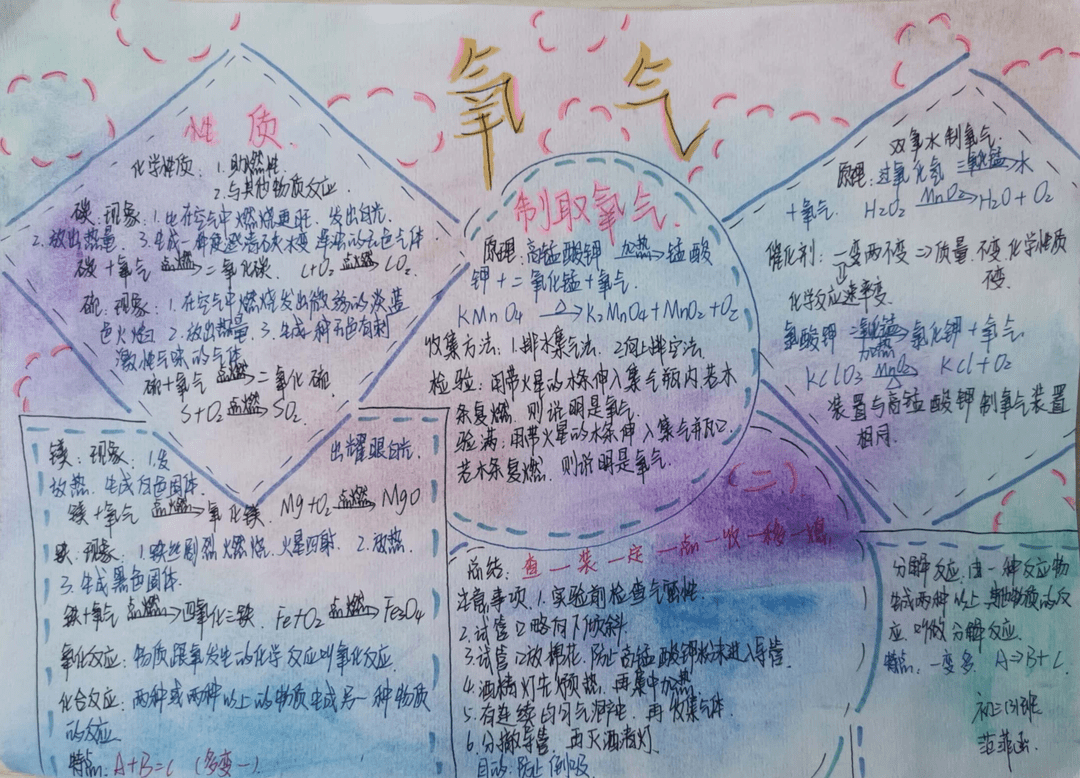 氧气
性质
化学性质: 1.助燃性
2.与其他物质反应
碳:现象:1.比在空气中燃烧更旺.发出白光.
2.放出热量. 3.生成一种使澄清石灰水变浑浊的无色气体
碳+氧气 点燃→ 二氧化碳. C+O₂ 点燃→ CO₂.
硫:现象:1.在空气中燃烧发出微弱的淡蓝
色火焰 2.放出热量. 3.生成一种无色有刺
激性气味的气体
硫+氧气 点燃→ 二氧化硫.
S+O₂ 点燃→ SO₂
镁:现象:1.发出耀眼白光.
放热.生成白色固体.
镁+氧气 点燃→ 氧化镁. Mg+O₂ 点燃→ MgO
铁:现象:1.铁丝剧烈燃烧.火星四射. 2.放热.
3.生成黑色固体.
铁+氧气 点燃→ 四氧化三铁. Fe+O₂ 点燃→ Fe₃O₄
氧化反应:物质跟氧发生的化学反应叫氧化反应.
化合反应:两种或两种以上的物质生成另一种物质
的反应.
特点:A+B=C (多变一).
制取氧气.
原理:高锰酸钾 加热→ 锰酸
钾+二氧化锰+氧气.
KMnO₄ △→ K₂MnO₄+MnO₂+O₂
收集方法:1.排水集气法. 2.向上排空法.
检验:用带火星的木条伸入集气瓶内若木
条复燃.则说明是氧气.
验满:用带火星的木条伸入集气瓶口.
若木条复燃.则说明是氧气.
(二)
总结:查一装一定一点一收一移一熄.
注意事项.1.实验前检查气密性
2.试管口略向下倾斜.
3.试管口放棉花,防止高锰酸钾粉末进入导管.
4.酒精灯先预热.再集中加热
5.有连续均匀气泡产生.再收集气体.
6.先撤导管,再灭酒精灯.
目的:防止倒吸
双氧水制氧气.
原理:过氧化氢 二氧化锰→ 水
+氧气. H₂O₂ MnO₂→ H₂O+O₂
催化剂:一变两不变⇒质量不变.化学性质
不变.
化学反应速率变.
氯酸钾 二氧化锰 加热→ 氯化钾+氧气.
KClO₃ MnO₂→ KCl+O₂
装置与高锰酸钾制氧气装置
相同.
分解反应:由一种反应物
生成两种以上其他物质的反
应.叫做分解反应.
特点:一变多. A⇒B+C.
初三(3)班
范菲函.